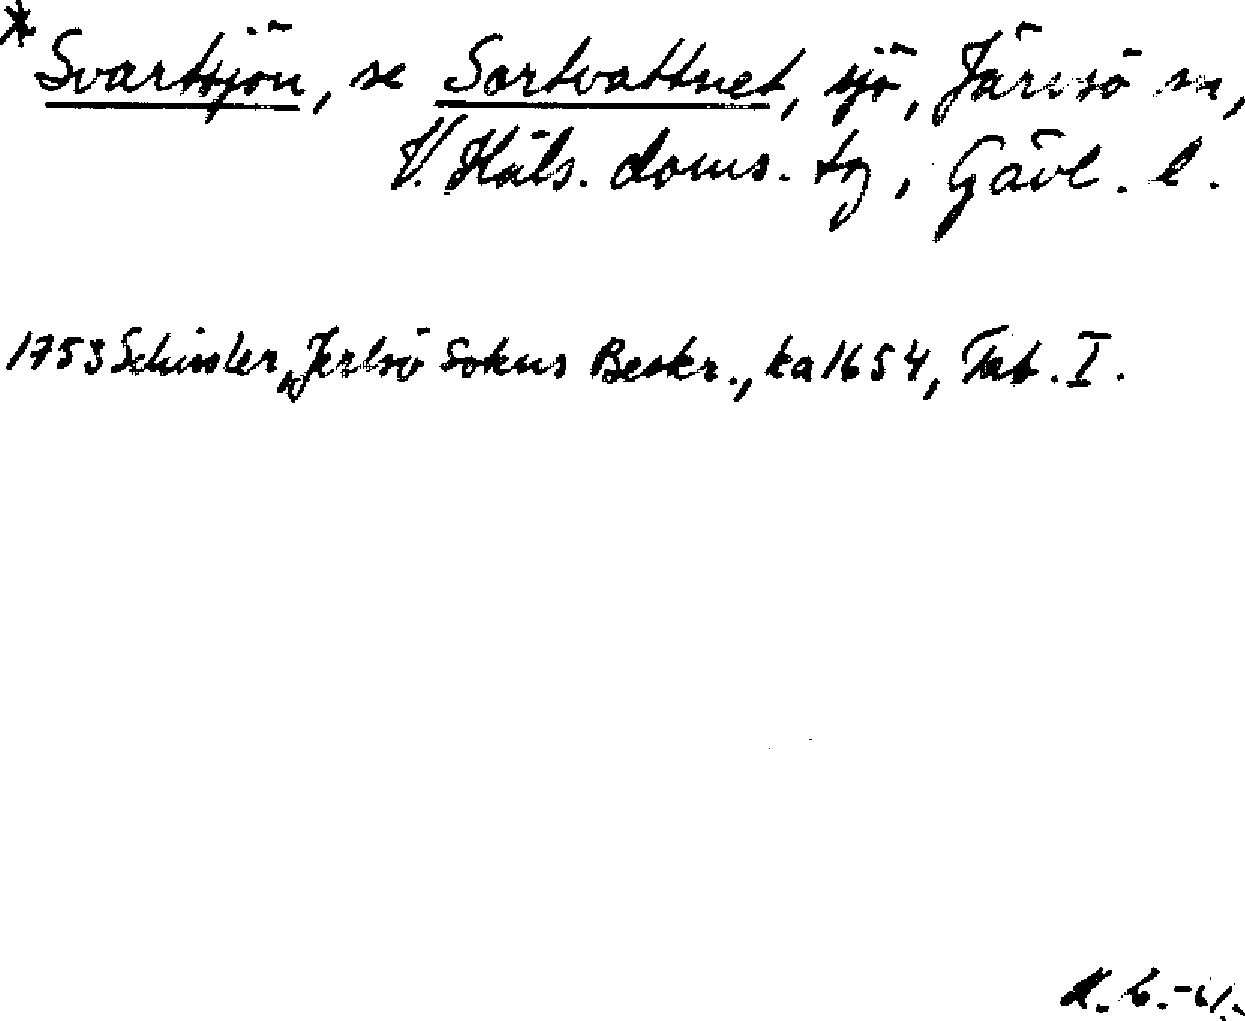 * Svarttjön, se Sortvattnet, sjö, Järvsö sn,
V. Häls. doms. tg, Gävl. l.
1753 Schissler, Jerlsö Sokns Beskr., ka 1654, Tab. I.